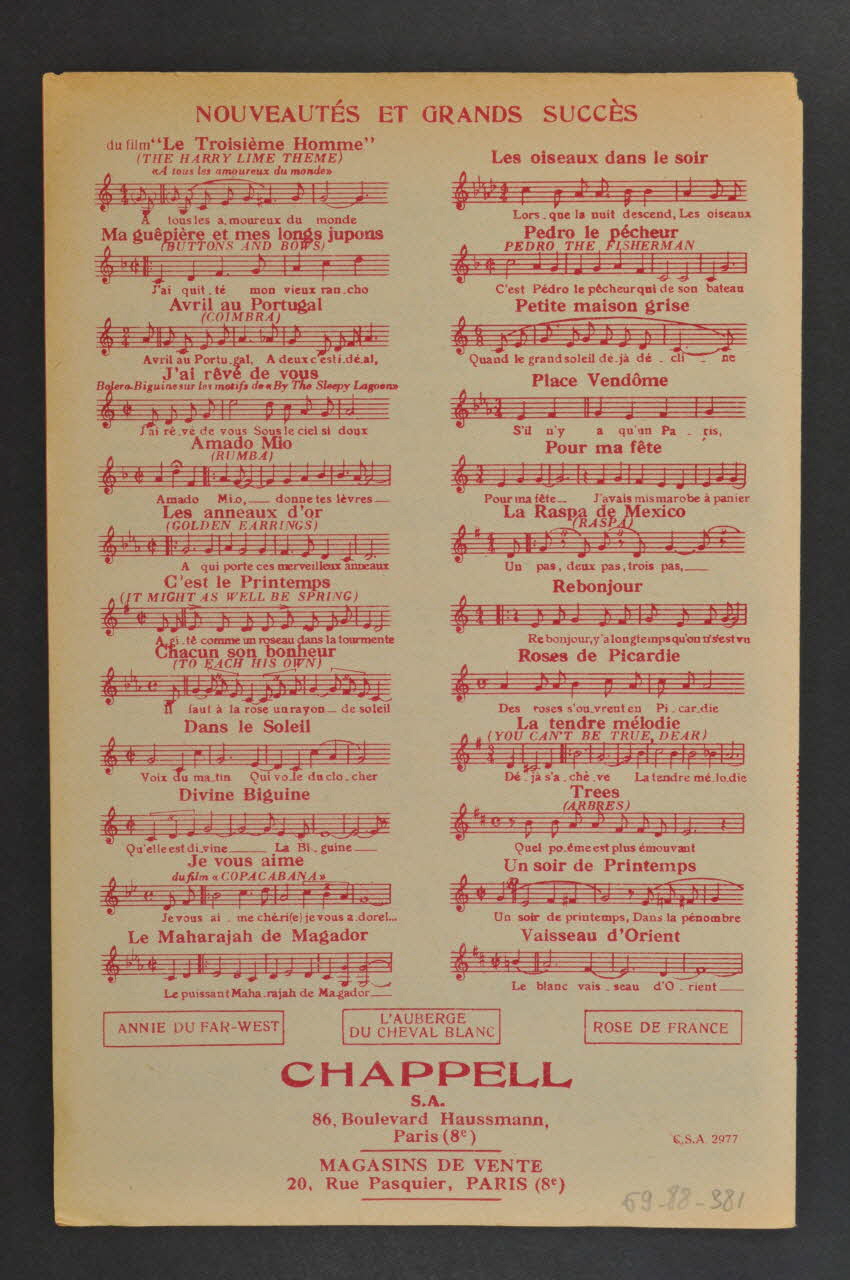 NOUVEAUTÉS ET GRANDS SUCCÈS
du film "Le Troisième Homme"
(THE HARRY LIME THEME)
«A tous les amoureux du monde»
A tous les a.moureux du monde
Ma guêpière et mes longs jupons
(BUTTONS AND BOWS)
J'ai quit.té mon vieux ran.cho
Avril au Portugal
(COIMBRA)
Avril au Portu.gal, A deux c'est i.dé.al,
J'ai rêvé de vous
Bolero-Biguine sur les motifs de «By The Sleepy Lagoon»
J'ai rê.vé de vous Sous le ciel si doux
Amado Mio
(RUMBA)
Amado Mi.o, donne tes lèvres
Les anneaux d'or
(GOLDEN EARRINGS)
A qui porte ces merveilleux anneaux
C'est le Printemps
(IT MIGHT AS WELL BE SPRING)
A.gi.té comme un roseau dans la tourmente
Chacun son bonheur
(TO EACH HIS OWN)
Il faut à la rose un rayon de soleil
Dans le Soleil
Voix du ma.tin Qui vo.le du clo.cher
Divine Biguine
Qu'elle est di.vine La Bi.guine
Je vous aime
du film «COPACABANA»
Je vous ai . me ché.ri(e) je vous a.dore!...
Le Maharajah de Magador
Le puissant Maha.rajah de Ma.gador
Les oiseaux dans le soir
Lors.que la nuit descend, Les oiseaux
Pedro le pécheur
PEDRO THE FISHERMAN
C'est Pédro le pêcheur qui de son bateau
Petite maison grise
Quand le grand soleil dé.jà dé . cli . ne
Place Vendôme
S'il n'y a qu'un Pa . ris,
Pour ma fête
Pour ma fête J'avais mis ma robe à panier
La Raspa de Mexico
(RASPA)
Un pas, deux pas, trois pas,
Rebonjour
Re bonjour, y'a longtemps qu'on n's'est vu
Roses de Picardie
Des roses s'ou.vrent en Pi.car.die
La tendre mélodie
(YOU CAN'T BE TRUE, DEAR)
Dé.jà s'a.chè.ve La tendre mé.lo.die
Trees
(ARBRES)
Quel po.éme est plus émouvant
Un soir de Printemps
Un soir de printemps, Dans la pénombre
Vaisseau d'Orient
Le blanc vais . seau d'O . rient
ANNIE DU FAR-WEST
L'AUBERGE
DU CHEVAL BLANC
ROSE DE FRANCE
CHAPPELL
S.A.
86, Boulevard Haussmann,
Paris (8e)
C.S.A. 2977
MAGASINS DE VENTE
20, Rue Pasquier, PARIS (8e)
69-88-381